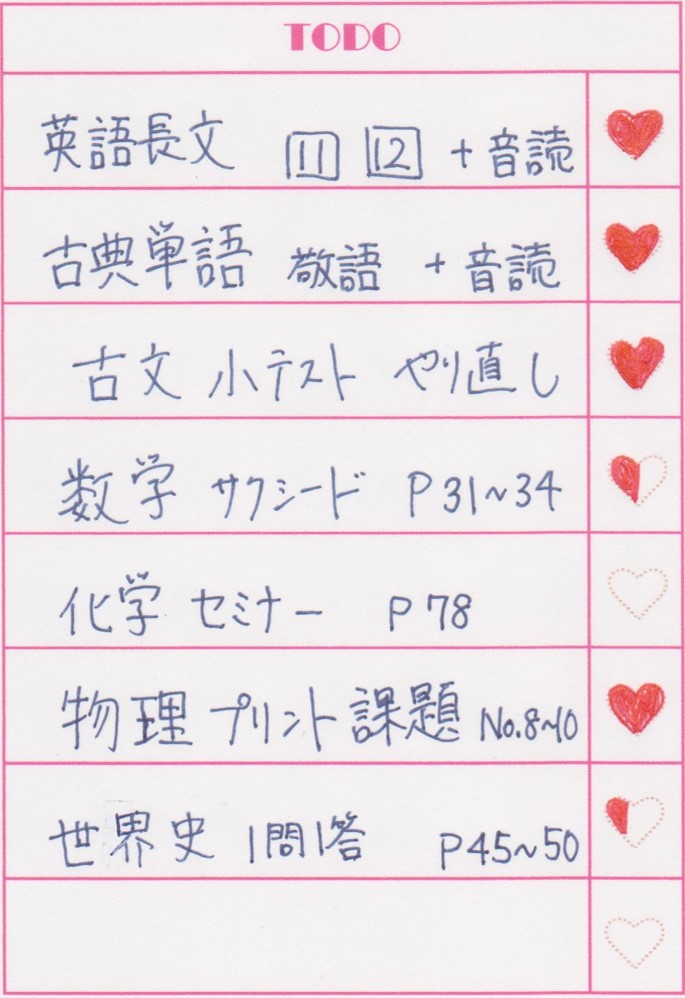 TODO
英語長文 11 12 + 音読
古典単語 敬語 + 音読
古文 小テスト やり直し
数学 サクシード P31~34
化学 セミナー P78
物理 プリント課題 No.8~10
世界史 1問1答 P45~50